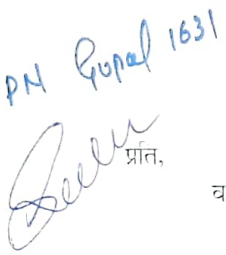 PN Gopal 1631
प्रति,
व